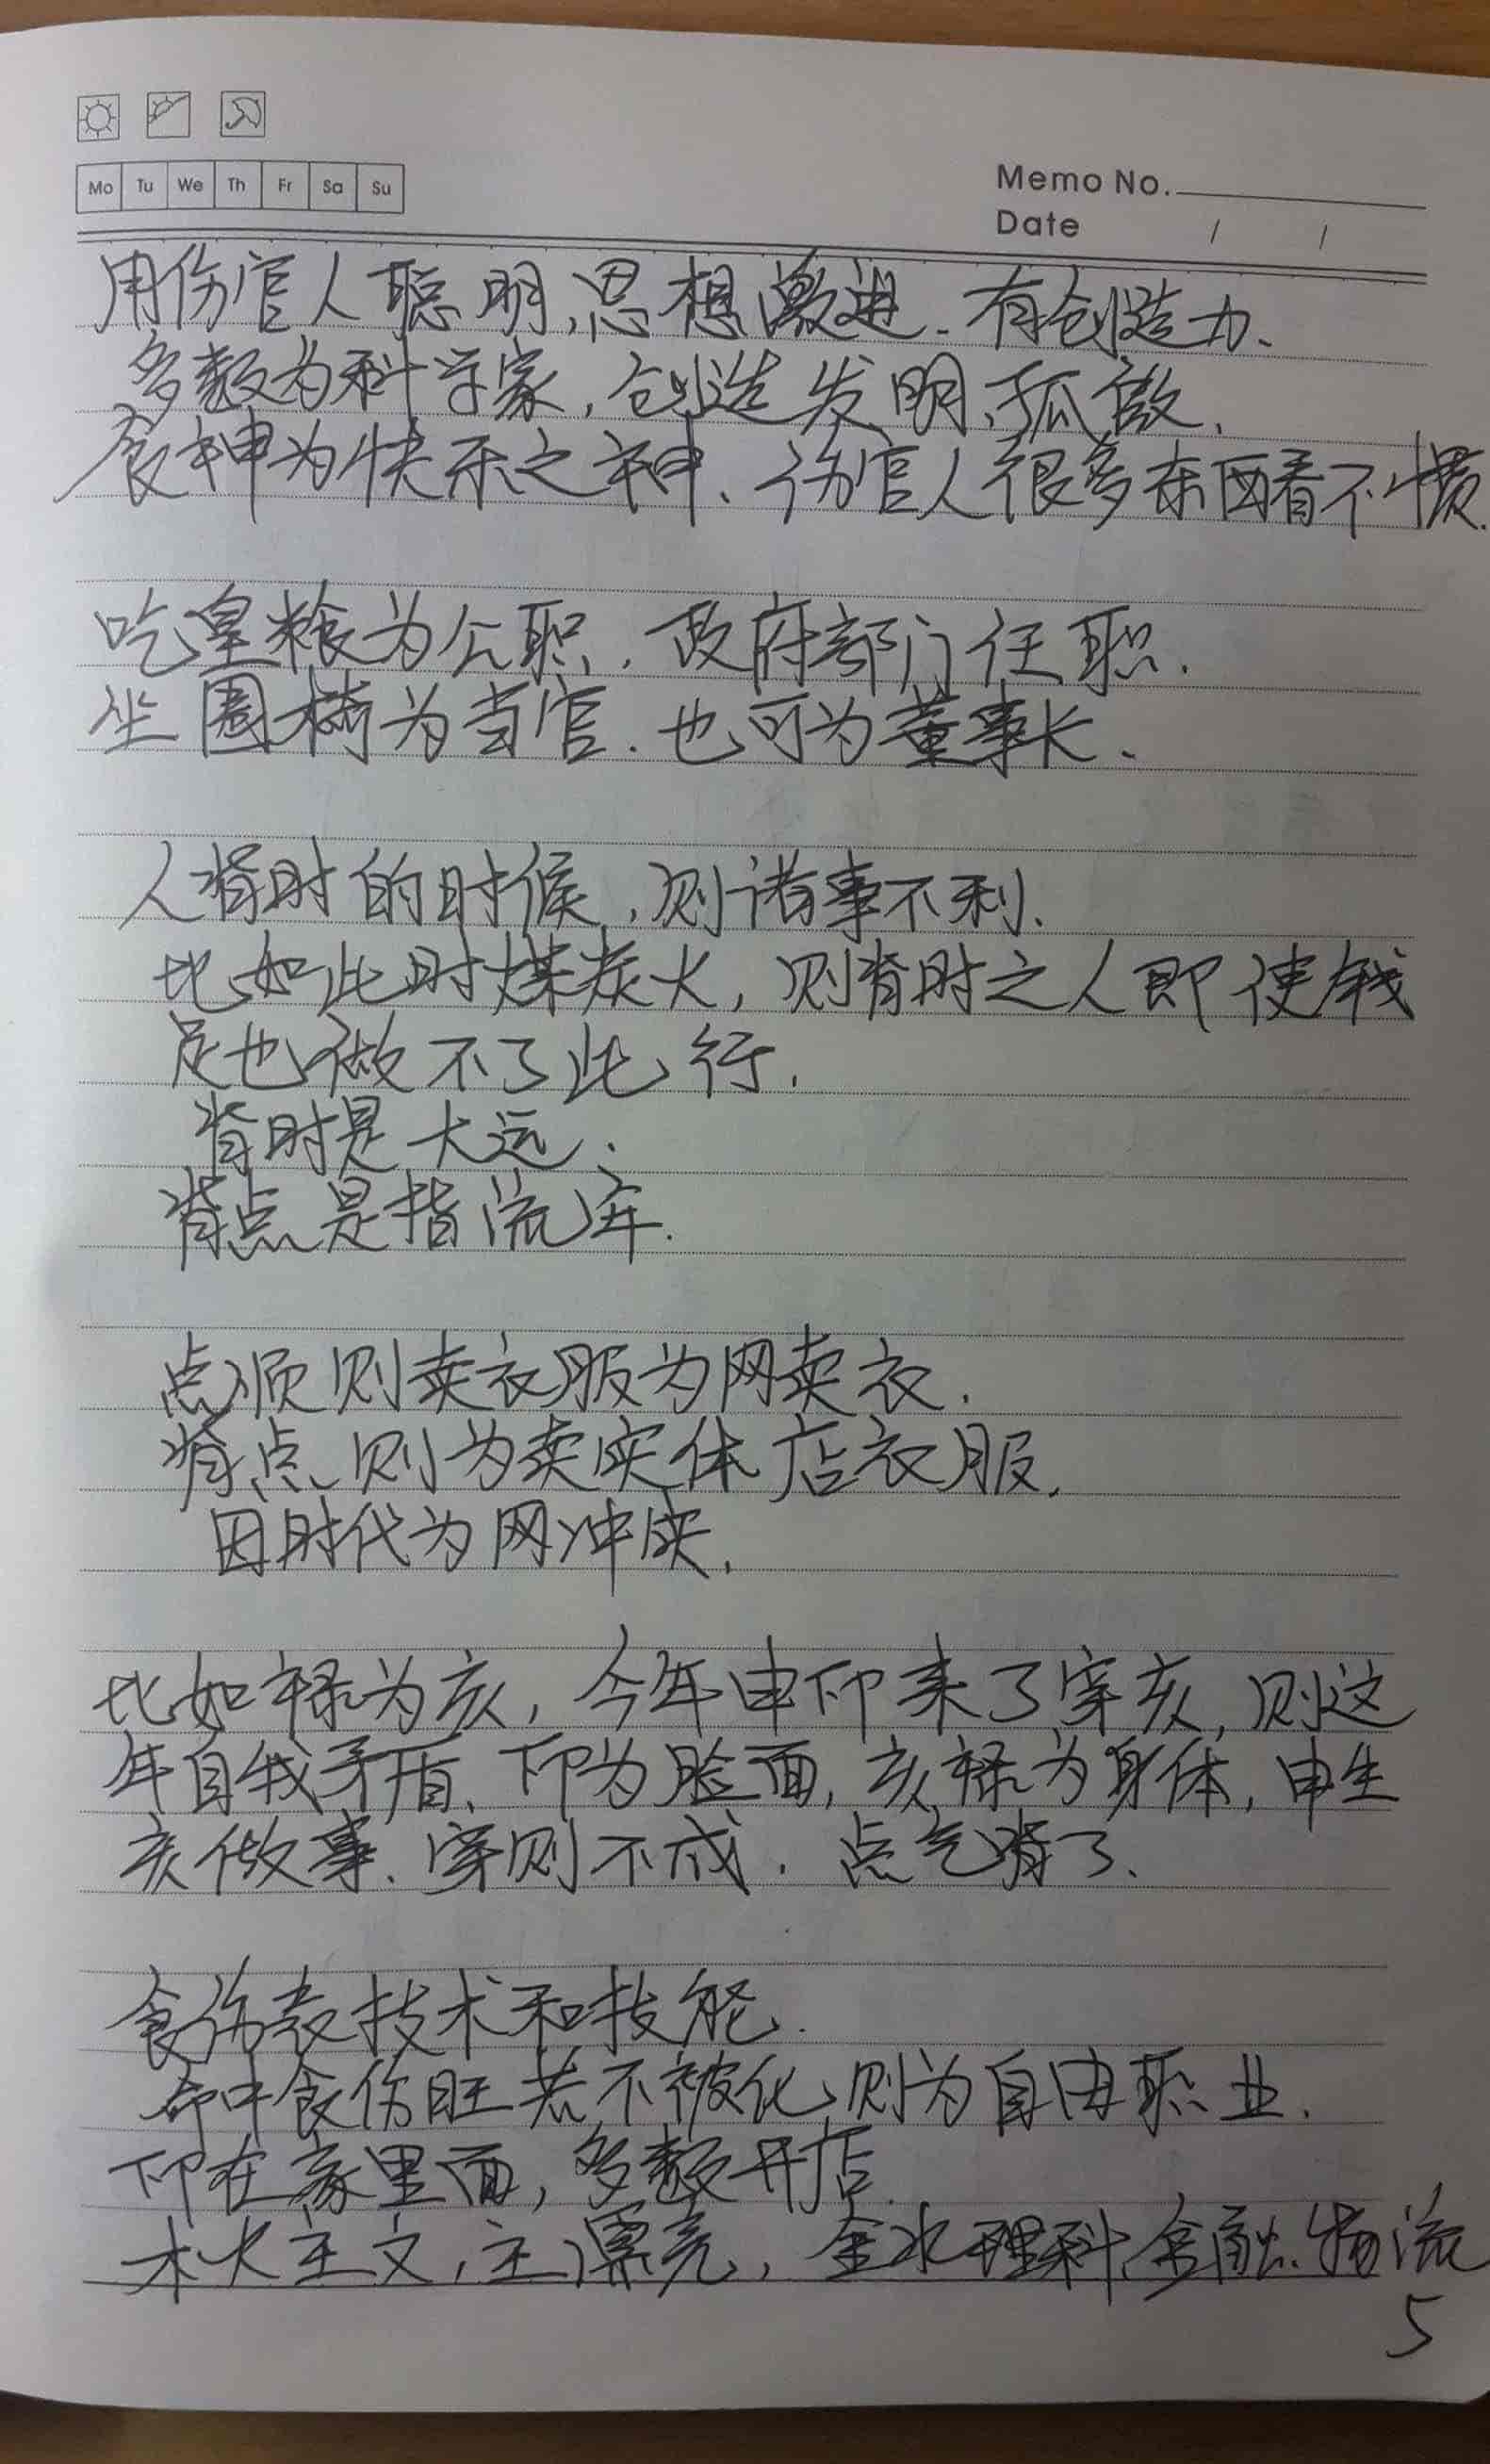 Mo Tu We Th Fr Sa Su
Memo No.
Date / /
用伤官人聪明、思想激进、有创造力、
多数为科学家,创造发明、孤傲、
食神为快乐之神、伤官人很多东西看不惯.
吃皇粮为公职,政府部门任职.
坐圈椅为当官.也可为董事长、
人背时的时候,则诸事不利.
比如此时煤炭火,则背时之人即使钱
足也做不了此行.
背时是大运.
背点是指流年.
点顺则卖衣服为网卖衣.
背点则为卖实体店衣服.
因时代为网冲实.
比如禄为亥,今年申印来了穿亥,则这
年自我矛盾、印为脸面,亥禄为身体,申生
亥做事、穿则不成.点气背了、
食伤表技术和技能.
命中食伤旺若不被化,则为自由职业.
印在家里面,多数开店.
木火主文,主漂亮,金水理科、金融、物流
5